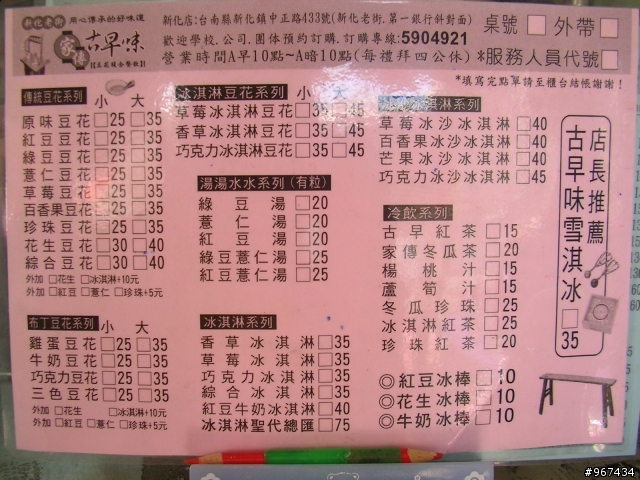 新化老街 用心傳承的好味道
家傳 古早味
【豆花複合餐飲】
新化店:台南縣新化鎮中正路433號(新化老街.第一銀行斜對面)
歡迎學校.公司.團体預約訂購.訂購專線:5904921
營業時間A早10點~A暗10點(每禮拜四公休)
桌號□ 外帶□
*服務人員代號□
*填寫完點單請至櫃台結帳謝謝!
傳統豆花系列 小 大
原味豆花□25□35
紅豆豆花□25□35
綠豆豆花□25□35
薏仁豆花□25□35
草莓豆花□25□35
百香果豆花□25□35
珍珠豆花□25□35
花生豆花□30□40
綜合豆花□30□40
外加 □花生 □冰淇淋+10元
外加 □紅豆 □薏仁 □珍珠+5元
布丁豆花系列 小 大
雞蛋豆花□25□35
牛奶豆花□25□35
巧克力豆花□25□35
三色豆花□25□35
外加 □花生 □冰淇淋+10元
外加 □紅豆 □薏仁 □珍珠+5元
冰淇淋豆花系列 小 大
草莓冰淇淋豆花□35□45
香草冰淇淋豆花□35□45
巧克力冰淇淋豆花□35□45
湯湯水水系列(有粒)
綠豆湯□20
薏仁湯□20
紅豆湯□20
綠豆薏仁湯□25
紅豆薏仁湯□25
冰淇淋系列
香草冰淇淋□35
草莓冰淇淋□35
巧克力冰淇淋□35
綜合冰淇淋□35
紅豆牛奶冰淇淋□40
冰淇淋聖代總匯□75
淇淋系列
草莓冰沙冰淇淋□40
百香果冰沙冰淇淋□40
芒果冰沙冰淇淋□40
巧克力冰沙冰淇淋□45
冷飲系列
古早紅茶□15
家傳冬瓜茶□20
楊桃汁□15
蘆筍汁□15
冬瓜珍珠□25
冰淇淋紅茶□25
珍珠紅茶□20
◎紅豆冰棒□10
◎花生冰棒□10
◎牛奶冰棒□10
店長推薦
古早味雪淇冰□35
#967434